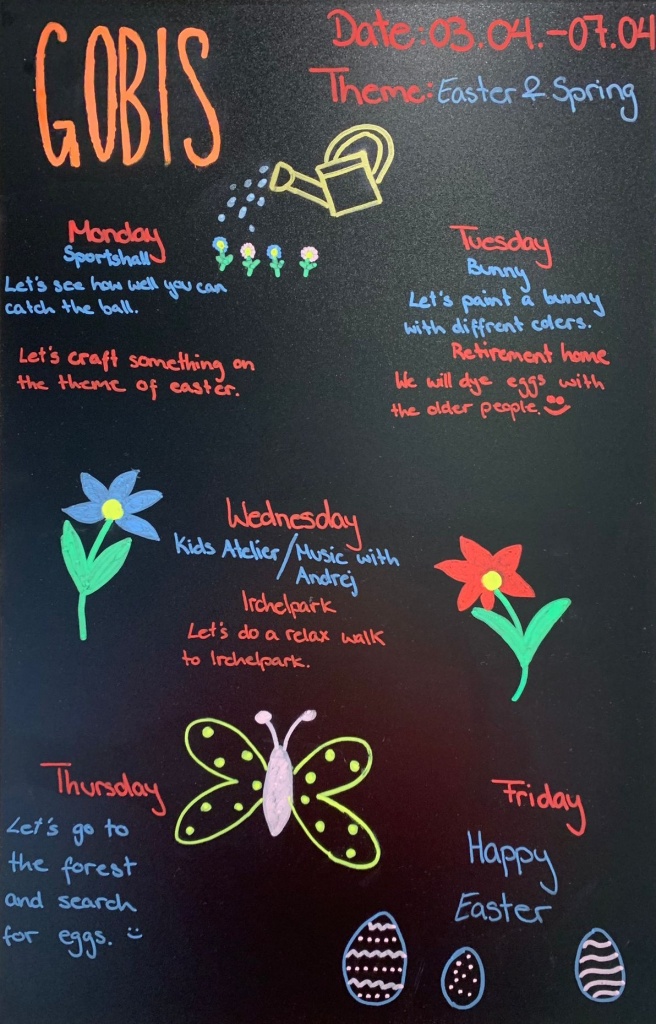 GOBIS
Date: 03.04.-07.04
Theme: Easter & Spring
Monday
Sportshall
Let's see how well you can
catch the ball.
Let's craft something on
the theme of easter.
Tuesday
Bunny
Let's paint a bunny
with diffrent colers.
Retirement home
We will dye eggs with
the older people.
Wednesday
Kids Atelier/Music with
Andrej
Irchelpark
Let's do a relax walk
to Irchelpark.
Thursday
Let's go to
the forest
and search
for eggs.
Friday
Happy
Easter